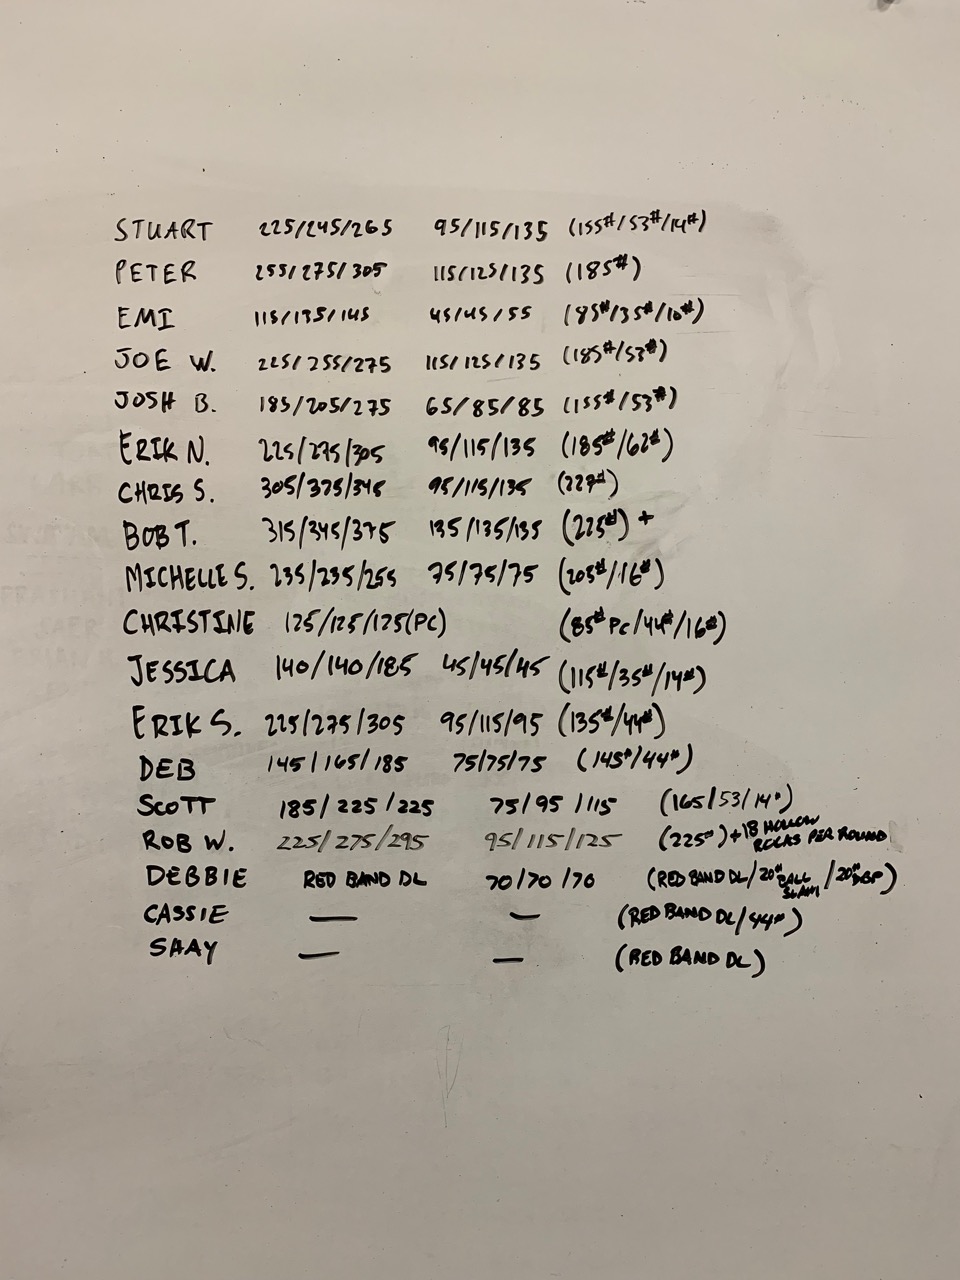 STUART 225/245/265 95/115/135 (155#/53#/14#)
PETER 255/275/305 115/125/135 (185#)
EMI 115/135/145 45/45/55 (85#/35#/10#)
JOE W. 225/255/275 115/125/135 (185#/53#)
JOSH B. 185/205/275 65/85/85 (155#/53#)
ERIK N. 225/275/305 95/115/135 (185#/62#)
CHRIS S. 305/375/345 95/115/135
BOB T. 315/345/375 135/135/135 (225#) +
MICHELLE S. 235/235/255 75/75/75 (205#/16#)
CHRISTINE 125/125/125(PC) (85# PC/44#/16#)
JESSICA 140/140/185 45/45/45 (115#/35#/14#)
ERIK S. 225/275/305 95/115/95 (135#/44#)
DEB 145/165/185 75/75/75 (145#/44#)
SCOTT 185/225/225 75/95/115 (165/53/14#)
ROB W. 225/275/295 95/115/125 (225#)+18 HOLLOW ROCKS PER ROUND
DEBBIE RED BAND DL 70/70/70 (RED BAND DL/20# BALL SLAM/20#
CASSIE — — (RED BAND DL/44#)
SHAY — — (RED BAND DL)